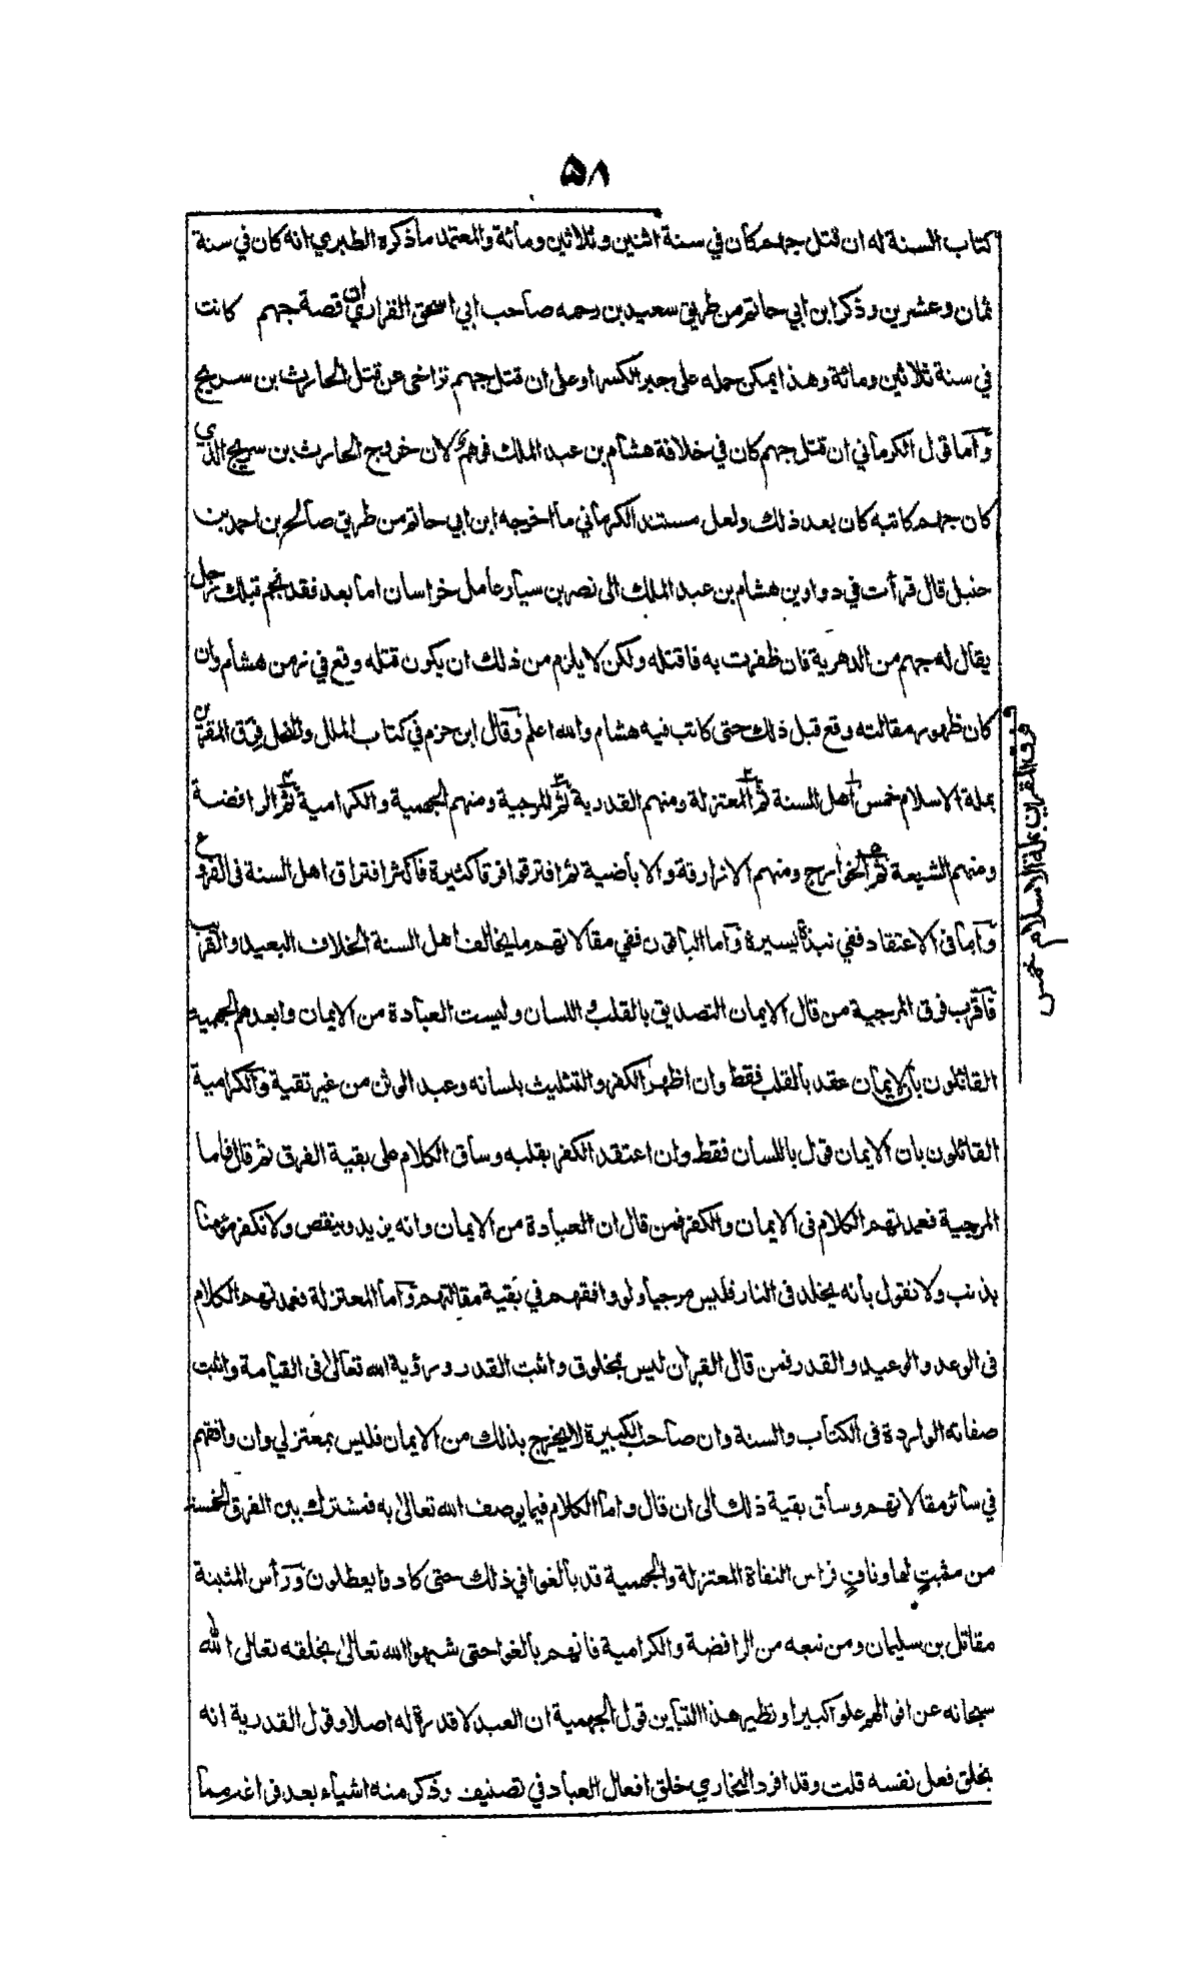 ۵۸
كتاب السنة له ان قتل جهم كان في سنة اثنين وثلاثين ومائة والمعتمد ما ذكره الطبري انه كان في سنة
ثمان وعشرين وذكر ابن ابي حاتم من طريق سعيد بن رحمه صاحب ابي اسحق الفزاري ان قصة جهم كانت
في سنة ثلاثين ومائة وهذا يمكن حمله على جبر الكسر او على ان قتل جهم تراخى عن قتل الحارث بن سريج
وآما قول الكرماني ان قتل جهم كان في خلافة هشام بن عبد الملك فوهم لان خروج الحارث بن سريج الذي
كان جهم كاتبه كان بعد ذلك ولعل مستند الكرماني ما اخرجه ابن ابي حاتم من طريق صالح بن احمد بن
حنبل قال قرأت في دواوين هشام بن عبد الملك الى نصر بن سيار عامل خراسان اما بعد فقد نجم قبلك رجل
يقال له جهم من الدهرية فان ظفرت به فاقتله ولكن لا يلزم من ذلك ان يكون قتله وقع في زمن هشام وان
كان ظهور مقالته وقع قبل ذلك حتى كاتب فيه هشام والله اعلم وقال ابن حزم في كتاب الملل والنحل فرق المقرين
بملة الاسلام خمس اهل السنة ثم المعتزلة ومنهم القدرية ثم المرجية ومنهم الجهمية والكرامية ثم الرافضة
ومنهم الشيعة ثم الخوارج ومنهم الازارقة والاباضية ثم افترقوا فرقا كثيرة فاكثر افتراق اهل السنة فى الفروع
وآما فى الاعتقاد ففي نبذة يسيرة وآما الباقون ففي مقالاتهم ما يخالف اهل السنة الخلاف البعيد والقريب
فآقرب فرق المرجية من قال الايمان التصديق بالقلب واللسان وليست العبادة من الايمان وابعدهم الجهمية
القائلون بان الايمان عقد بالقلب فقط وان اظهر الكفر والتثليث بلسانه وعبد الوثن من غير تقية والكرامية
القائلون بان الايمان قول باللسان فقط وان اعتقد الكفر بقلبه وساق الكلام على بقية الفرق ثم قال فاما
المرجية فعمدتهم الكلام فى الايمان والكفر فمن قال ان العبادة من الايمان وانه يزيد وينقص ولا نكفر مؤمنا
بذنب ولا نقول بانه يخلد فى النار فليس مرجيا ولو وافقهم في بقية مقالتهم وآما المعتزلة فعمدتهم الكلام
فى الوعد والوعيد والقدر فمن قال القران ليس بمخلوق واثبت القدر ورؤية الله تعالى فى القيامة واثبت
صفاته الواردة فى الكتاب والسنة وان صاحب الكبيرة لا يخرج بذلك من الايمان فليس بمعتزلي وان وافقهم
في سائر مقالاتهم وساق بقية ذلك الى ان قال واما الكلام فيما يوصف الله تعالى به فمشترك بين الفرق الخمسة
من مثبتٍ لها ونافٍ فراس النفاة المعتزلة والجهمية قد بالغوا في ذلك حتى كادوا يعطلون ورأس المثبتة
مقاتل بن سليمان ومن تبعه من الرافضة والكرامية فانهم بالغوا حتى شبهوا الله تعالى بخلقه تعالى الله
سبحانه عن اقوالهم علوا كبيرا ونظير هذا التباين قول الجهمية ان العبد لا قدرة له اصلا وقول القدرية انه
يخلق فعل نفسه قلت وقد افرد البخاري خلق افعال العباد في تصنيف وذكر منه اشياء بعد فراغه مما
فرق المقرين بملة الاسلام خمس